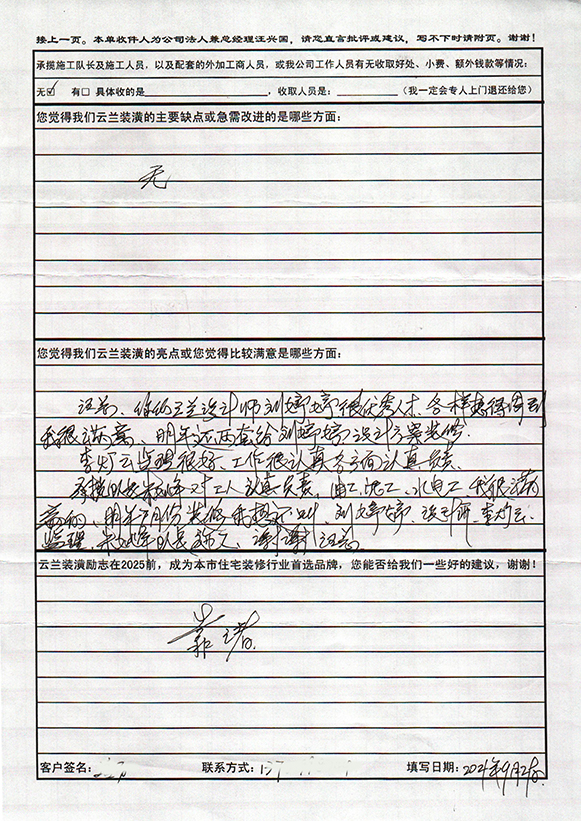 接上一页。本单收件人为公司法人兼总经理汪兴国，请您直言批评或建议，写不下时请附页。谢谢！
承揽施工队长及施工人员，以及配套的外加工商人员，或我公司工作人员有无收取好处、小费、额外钱款等情况：
无☑ 有□ 具体收的是____，收取人员是：____（我一定会专人上门退还给您）
您觉得我们云兰装潢的主要缺点或急需改进的是哪些方面：
无
您觉得我们云兰装潢的亮点或您觉得比较满意是哪些方面：
汪总、你的云兰设计师刘婷婷很优秀人才、各样想得周到
我很满意、明年还两套给刘婷婷设计方案装修.
李灯云监理很好、工作很认真各方面认真负责.
承揽队长 对工人认真负责，电工、泥工、水电工我很满
意的、明年 月份装修我想 叫、刘婷婷、设计师、李灯云
监理、 队长 谢谢汪总.
云兰装潢励志在2025前，成为本市住宅装修行业首选品牌，您能否给我们一些好的建议，谢谢！
客户签名：
联系方式：
填写日期：2021年9月2